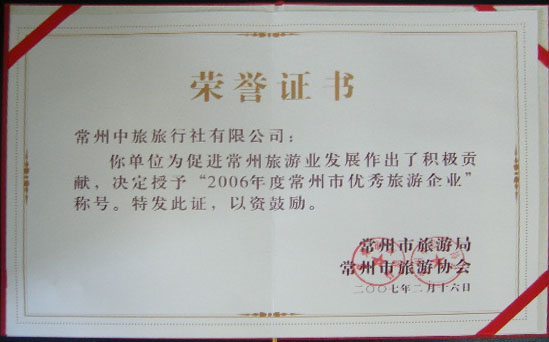 荣誉证书
常州中旅旅行社有限公司：
你单位为促进常州旅游业发展作出了积极贡
献，决定授予“2006年度常州市优秀旅游企业”
称号。特发此证，以资鼓励。
常州市旅游局
常州市旅游协会
二〇〇七年二月十六日